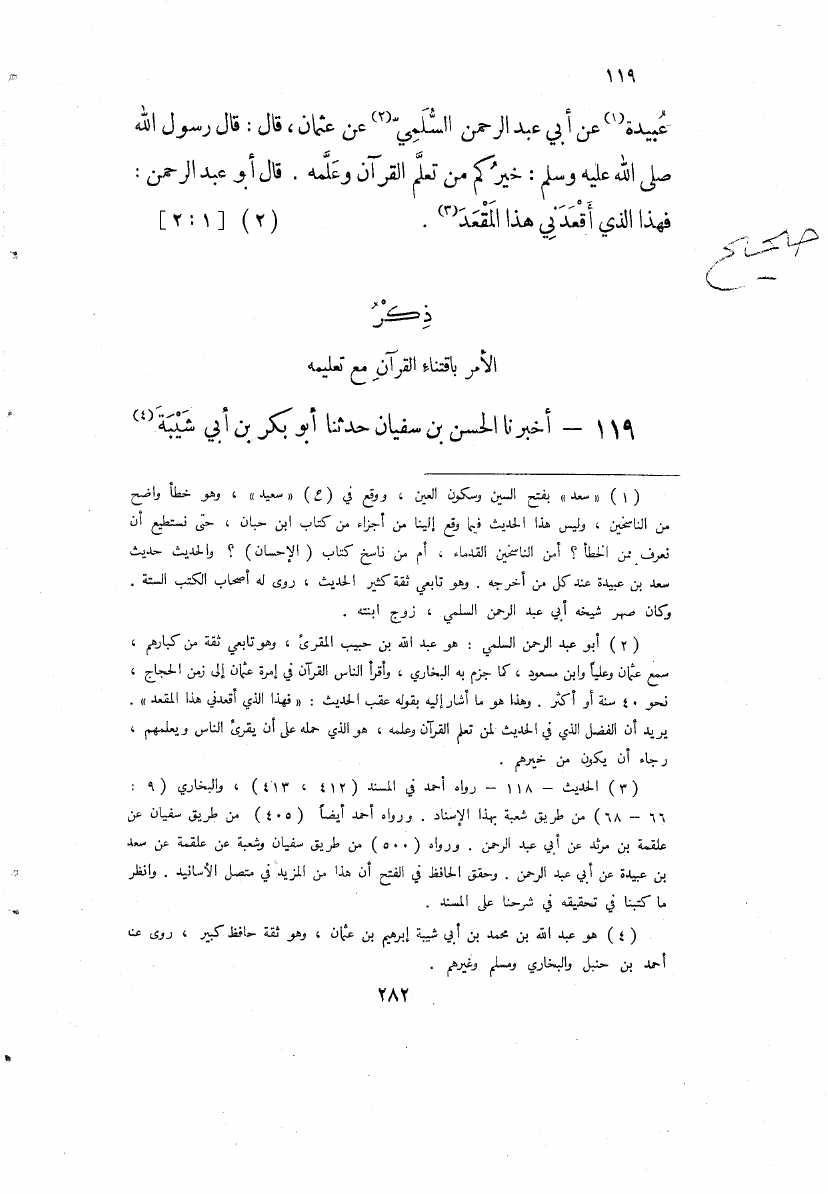 ١١٩
عُبيدة(١) عن أبي عبد الرحمن السُّلَمِيّ(٢) عن عثمان ، قال : قال رسول الله
صلى الله عليه وسلم : خيرُكم من تعلَّم القرآن وعَلَّمه . قال أبو عبد الرحمن :
فهذا الذي أَقْعَدَنِي هذا المَقْعَدَ(٣) . (٢) [٢:١]
صحيح
ذِكْرُ
الأمر باقتناء القرآنِ مع تعليمه
١١٩ – أخبرنا الحسن بن سفيان حدثنا أبو بكر بن أبي شَيْبَةَ(٤)
(١) «سعد» بفتح السين وسكون العين ، ووقع في (ع) «سعيد» ، وهو خطأ واضح
من الناسخين ، وليس هذا الحديث فيما وقع إلينا من أجزاء من كتاب ابن حبان ، حتى نستطيع أن
نعرف ممن الخطأ ؟ أمن الناسخين القدماء ، أم من ناسخ كتاب (الإحسان) ؟ والحديث حديث
سعد بن عبيدة عند كل من أخرجه . وهو تابعي ثقة كثير الحديث ، روى له أصحاب الكتب الستة .
وكان صهر شيخه أبي عبد الرحمن السلمي ، زوج ابنته .
(٢) أبو عبد الرحمن السلمي : هو عبد الله بن حبيب المقرئ ، وهو تابعي ثقة من كبارهم ،
سمع عثمان وعلياً وابن مسعود ، كما جزم به البخاري ، وأقرأ الناس القرآن في إمرة عثمان إلى زمن الحجاج ،
نحو ٤٠ سنة أو أكثر . وهذا هو ما أشار إليه بقوله عقب الحديث : «فهذا الذي أقعدني هذا المقعد» .
يريد أن الفضل الذي في الحديث لمن تعلم القرآن وعلمه ، هو الذي حمله على أن يقرئ الناس ويعلمهم ،
رجاء أن يكون من خيرهم .
(٣) الحديث – ١١٨ – رواه أحمد في المسند (٤١٢ ، ٤١٣) ، والبخاري (٩ :
٦٦ – ٦٨) من طريق شعبة بهذا الإسناد . ورواه أحمد أيضاً (٤٠٥) من طريق سفيان عن
علقمة بن مرثد عن أبي عبد الرحمن . ورواه (٥٠٠) من طريق سفيان وشعبة عن علقمة عن سعد
بن عبيدة عن أبي عبد الرحمن . وحقق الحافظ في الفتح أن هذا من المزيد في متصل الأسانيد . وانظر
ما كتبنا في تحقيقه في شرحنا على المسند .
(٤) هو عبد الله بن محمد بن أبي شيبة إبرهيم بن عثمان ، وهو ثقة حافظ كبير ، روى عنه
أحمد بن حنبل والبخاري ومسلم وغيرهم .
٢٨٢